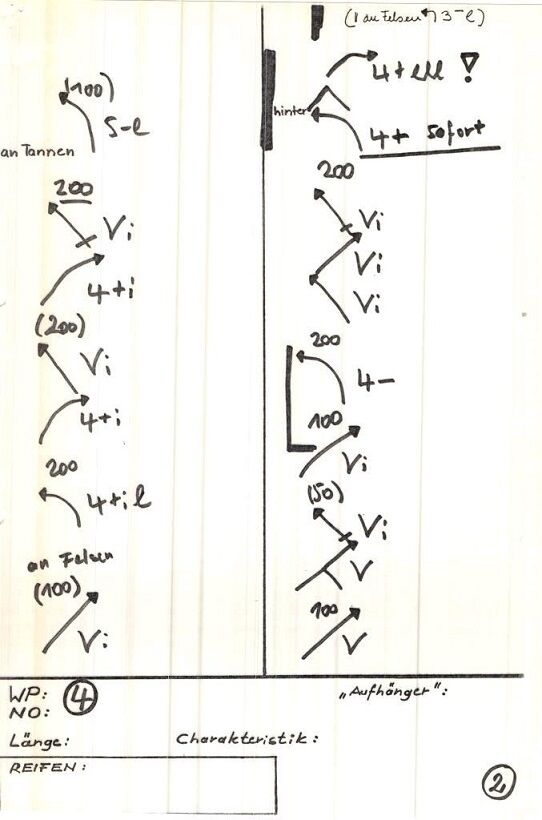 (100)
5-l
an Tannen
200
Vi
4+i
(200)
Vi
4+i
200
4+i l
an Felsen
(100)
Vi
an Felsen 3-l)
4+lll !
hinter
4+ sofort
200
Vi
Vi
Vi
200
4-
100
Vi
(50)
Vi
V
100
V
WP: 4
NO:
„Aufhänger":
Länge: Charakteristik:
REIFEN:
2